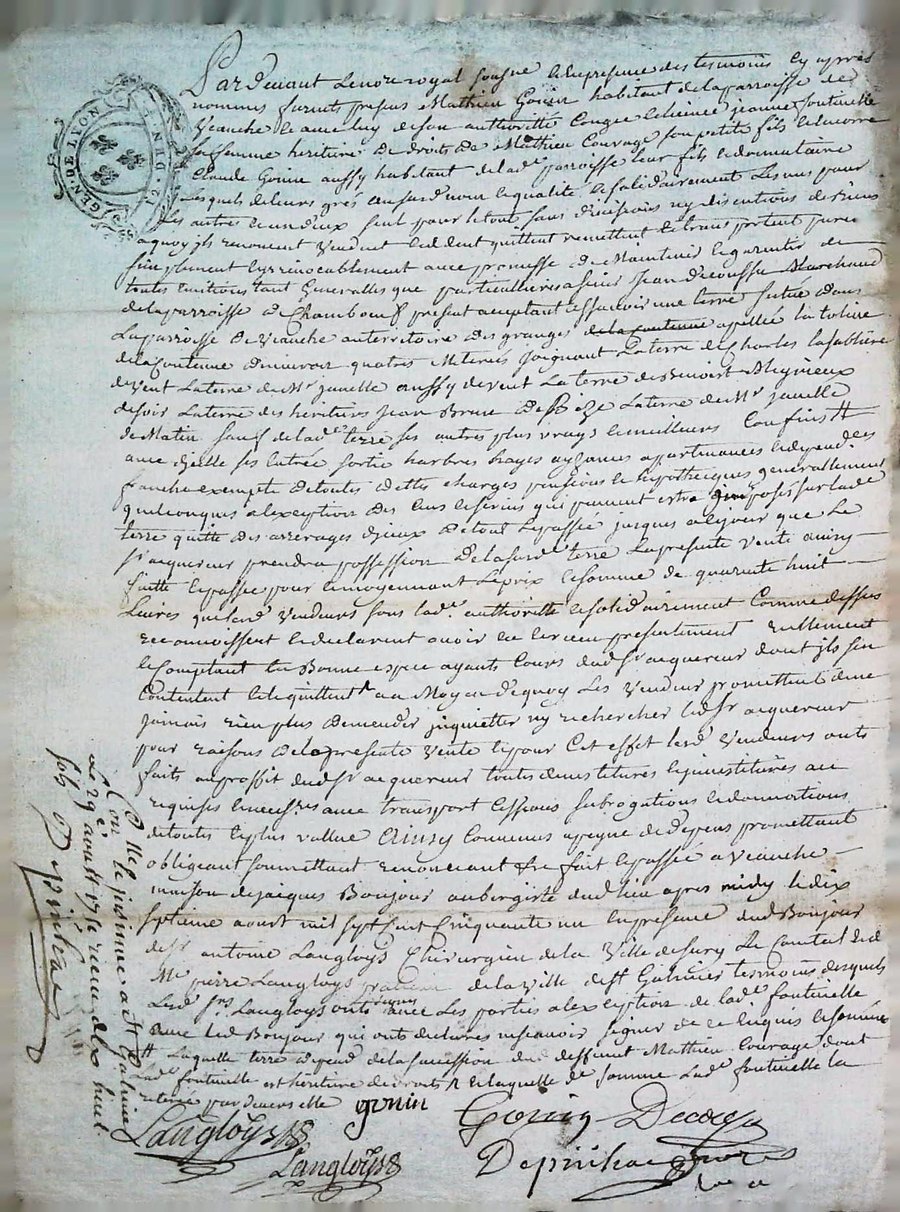 GEN. DE LYON
Pardevant Le no.re royal soussigné et en presence des tesmoins cy apres
nommes furent presens Mathieu Gonin habitant de la parroisse de
Veauche et avec luy de son authoritté Congée et licence jeanne fontinelle
sa femme heritiere de droits de Mathieu Courage son petit fils et encorre
Claude Gonin aussy habitant de lad.e parroisse leur fils et donnataire
Lesquels de leurs grés en surd. nom et qualité et solidairement Les uns pour
Les autres et un d'eux seul pour le tout sans divisions ny discutions de biens
a quoy ils renoncent Vendent cedent quittent remettent et transportent purem
simplement et yrrevocablement avec promesse de Maintenir et garentir de
toutes evictions tant Generalles que particullieres a sieur Jean Decousse Marchand
de la parroisse de Chambœuf present acceptant assavoir une terre scitué dans
La parroisse de Veauche au territoire des granges de la Contenue appellée la
de la Contenue d'environ quatres Meterés Joignant La terre de Charles Lasablière
de vent La terre de Mr janelle aussy de vent La terre de Benoist Meyrieux
de soir La terre des heritiers Jean Brun de Bize La terre de Mr janelle
de Matin sauf de lad.e terre ses autres plus vrays et meilleurs Confins #
avec ycelle ses Entrée sortie harbres hayes ayzances apartenances et depend.ces
franche exempte de toutes dettes charges pensions et hypotheques generallement
quelconques a l'exception des Cens et servis qui peuvent estre imposés sur lad.e
terre quitte des arrerages d'yceux de tout Le passée jusques a ce jour que Le
sr acquereur prendra possession de la surd.e terre La presente Vente ainsy
faitte et passée pour et moyennant Le prix et somme de quarente huit
Livres que lesd. Vendeurs sous lad.e authoritté et solidairement Comme dessus
reconnoissent et declarent avoir eu et receu presentement reellement
et Comptant En Bonne espece ayants Cours dud. Sr acquereur dont ils se
Contentent et le quittent au Moyen de quoy Les Vendeurs promettent de ne
jamais rien plus demender inquietter ny rechercher led. Sr acquereur
pour raisons de la presente Vente et pour Cet effet lesd. Vendeurs onts
faits au proffit dud. Sr acquereur toutes devestitures et investitures au
requises et necess.res avec transport cessions subrogations et donnations
de toutes et plus vallue Ainsy Convenus a peyne de depens promettant
obligeant soumettant renonceant &c fait et passée a Veauche
maison de jacques Bonjour aubergiste dud. lieu apres midy le dix
septieme aoust mil sept cent Cinquante un En presence dud. Bonjour
de Sr antoine Langloys Chirurgien de la Ville de Sury Le Comtal et de
Mr pierre Langloys praticien de la ville de St Galmier tesmoins desquels
Lesd. Srs Langloys onts signés avec Les parties a l'exception de lad.e fontinelle
avec led. Bonjour qui onts declarés ne scavoir signer de ce Enquis et sommés
# Laquelle terre depend de la succession dud. deffunt Mathieu Courage dont
Lad.e fontinelle est heritiere de droits & de laquelle de. somme Lad.e fontinelle la
retiré par devers elle
gonin
Gonin
Langloys
Langloys
Con.lé et insinué a St Galmier
Le 29 aoust 1751 receu